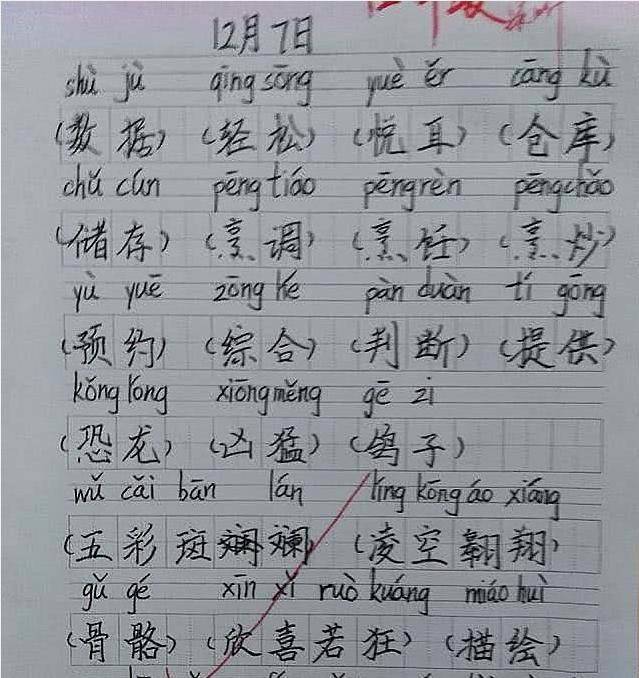 12月7日
shù jù qīng sōng yuè ěr cāng kù
(数据) (轻松) (悦耳) (仓库)
chǔ cún pēng tiáo pēng rèn pēng chǎo
(储存) (烹调) (烹饪) (烹炒)
yù yuē zōng hé pàn duàn tí gōng
(预约) (综合) (判断) (提供)
kǒng lóng xiōng měng gē zi
(恐龙) (凶猛) (鸽子)
wǔ cǎi bān lán líng kōng áo xiáng
(五彩斑斓) (凌空翱翔)
gǔ gé xīn xǐ ruò kuáng miáo huì
(骨骼) (欣喜若狂) (描绘)